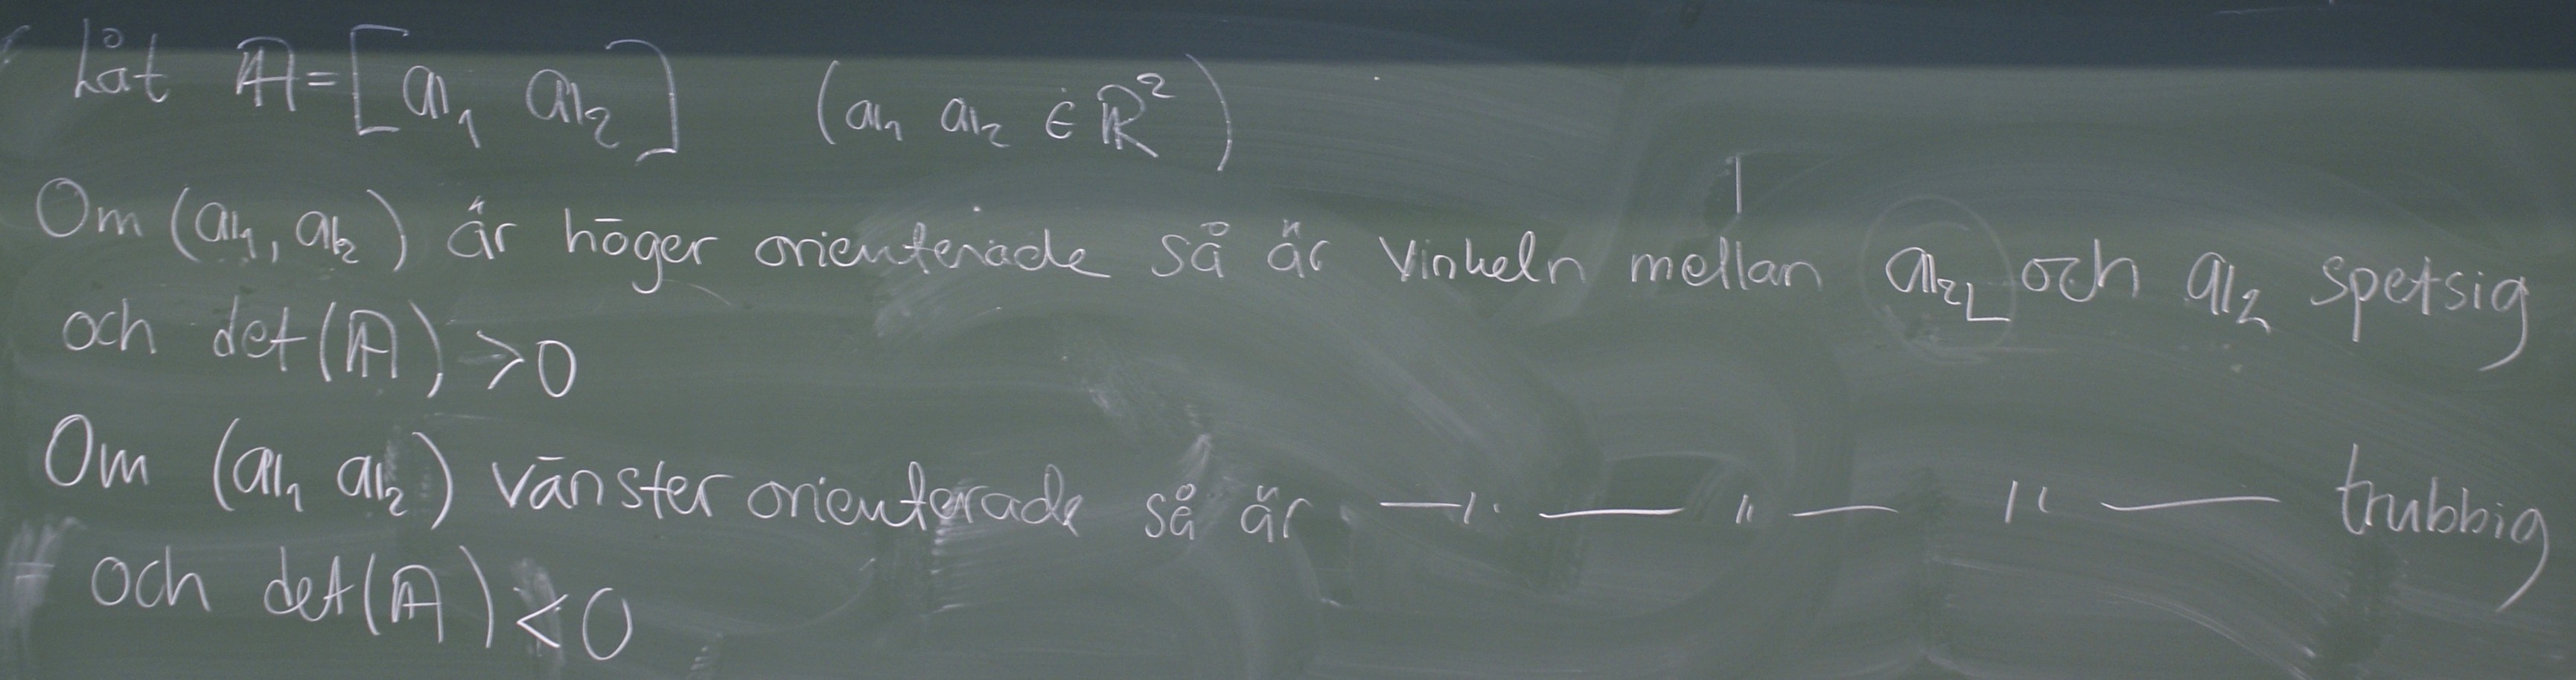 Låt A = [ a₁ a₂ ] (a₁ a₂ ∈ ℝ²)
Om (a₁, a₂) är höger orienterade så är vinkeln mellan a₂⌊ och a₂ spetsig
och det(A) > 0
Om (a₁ a₂) vänster orienterade så är — " — " — " — trubbig
och det(A) < 0